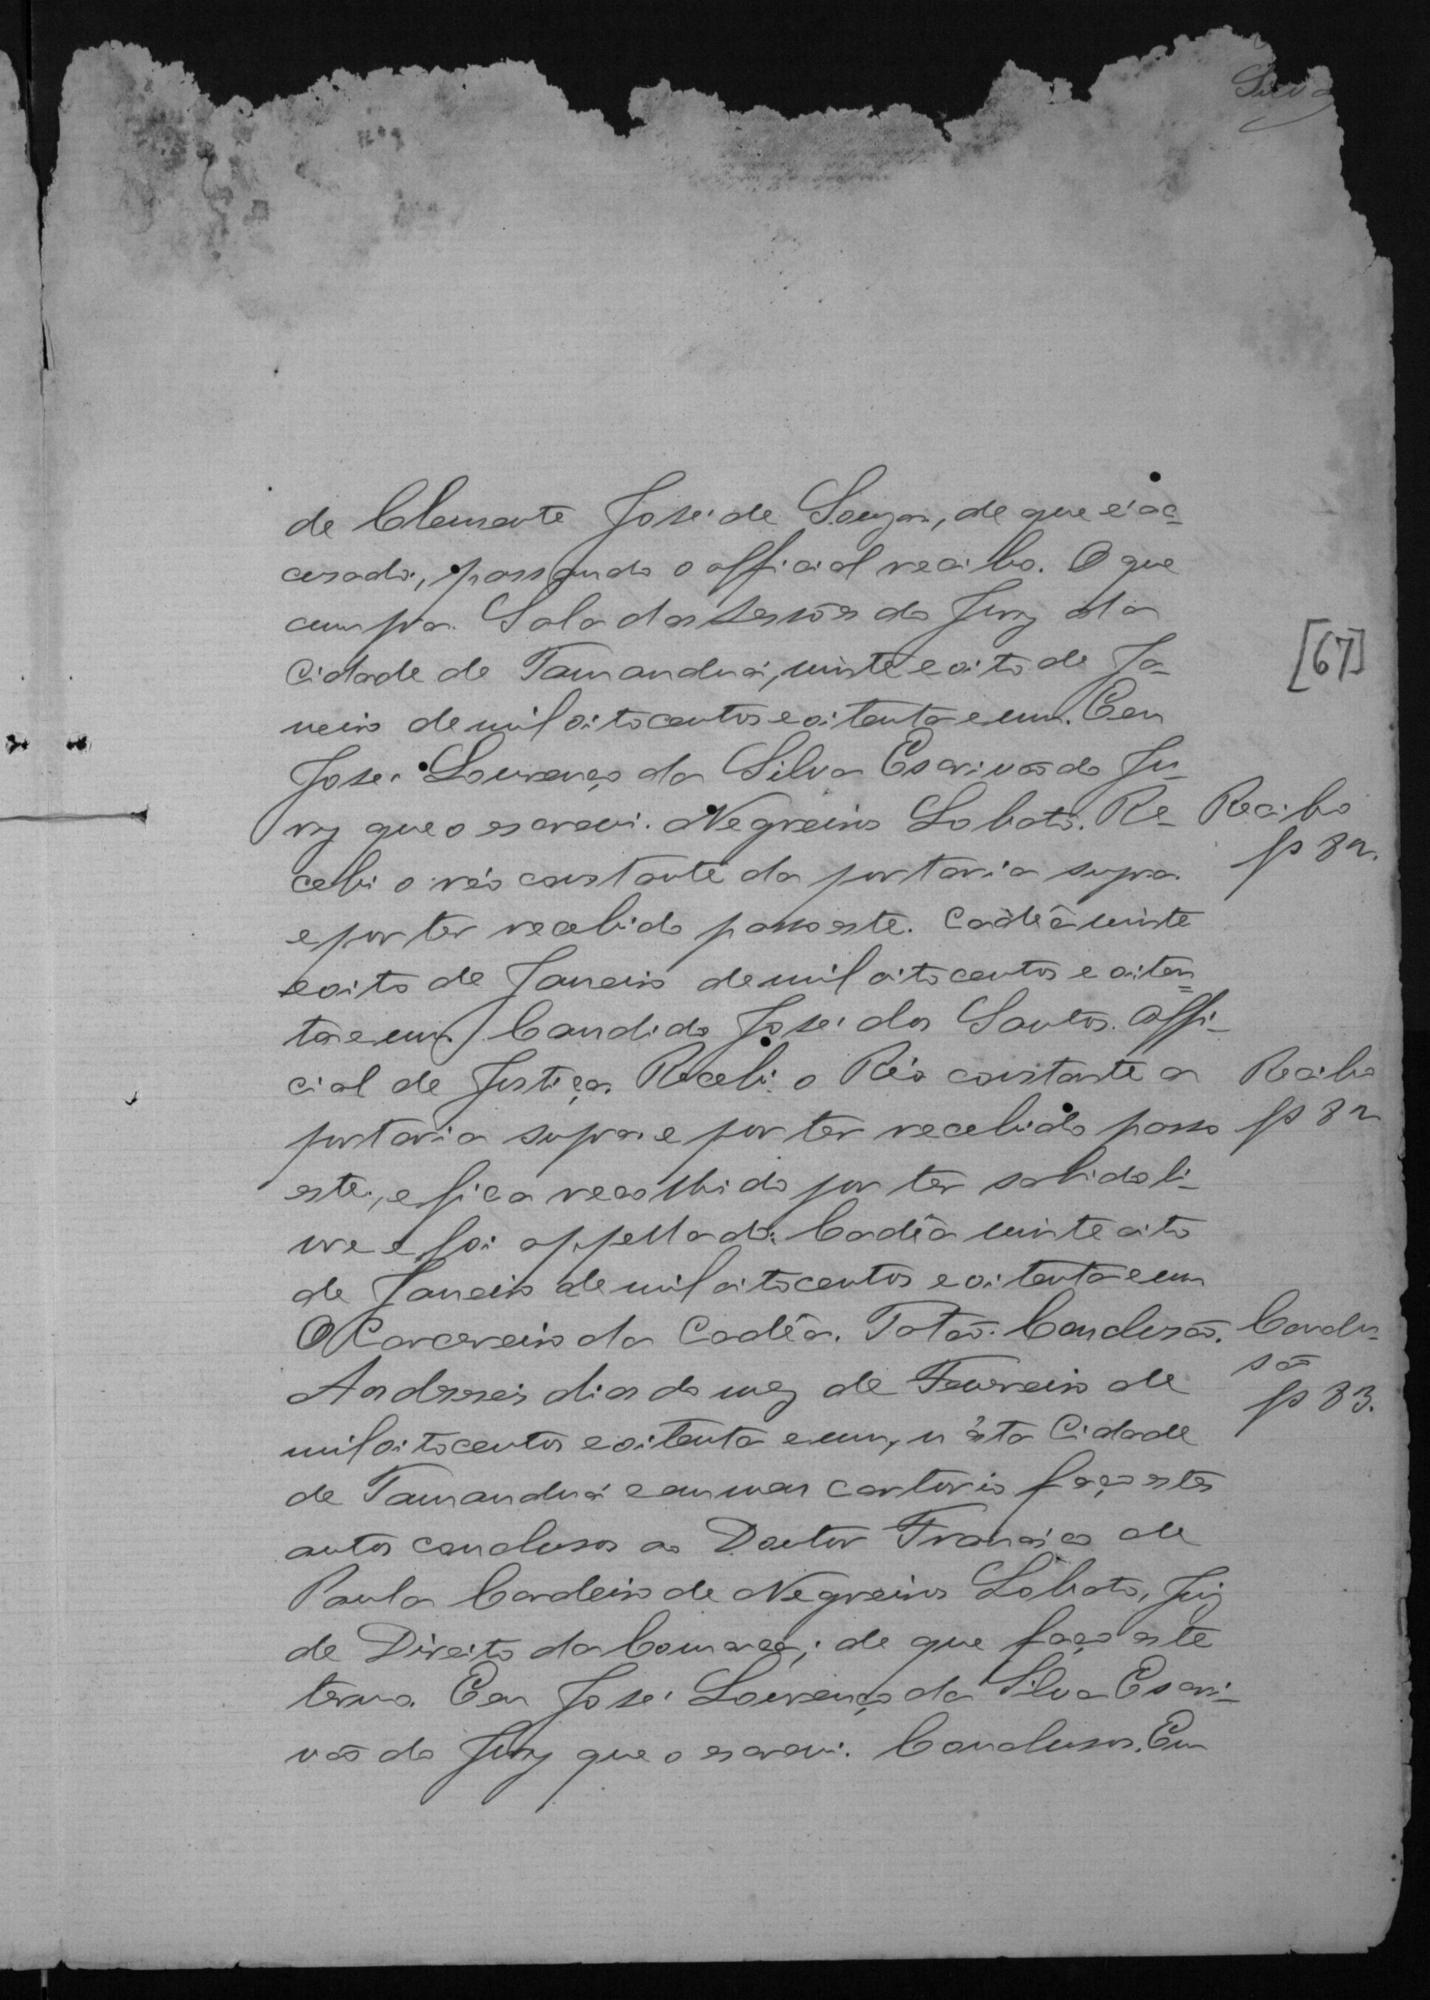 Silva
de Clemente José de Souza, de que é ac-
cusado, passando o official recibo. O que
cumpra. Sala das Sessões do Jury da
Cidade de Tamanduá, vinte e oito de Ja-
neiro de mil oitocentos e oitenta e um. Eu
José Lourenço da Silva Escrivão do Ju-
ry que o escrevi. Negreiros Lobato. Re-
Recibo
fs 82.
cebi o réo constante da portaria supra
e por ter recebido passo este. Cadêa vinte
e oito de Janeiro de mil oitocentos e oiten=
ta e um / Candido José dos Santos. Offi-
cial de Justiça. Recebi o Réo constante a
Recibo
fs 82
portaria supra e por ter recebido passo
este, e fica recolhido por ter sahido li-
vre e foi appellado. Cadêa vinte oito
de Janeiro de mil oitocentos e oitenta e um
O Carcereiro da Cadêa. Tatão. Conclusão.
Conclu-
são
fs 83.
Aos desseis dias do mez de Fevereiro de
mil oitocentos e oitenta e um, n'esta Cidade
de Tamanduá e em meu cartorio faço estes
autos conclusos ao Doutor Francisco de
Paula Cordeiro de Negreiros Lobato, Juiz
de Direito da Comarca; de que faço este
termo. Eu José Lourenço da Silva Escri-
vão do Jury que o escrevi. Conclusos. Em
[67]